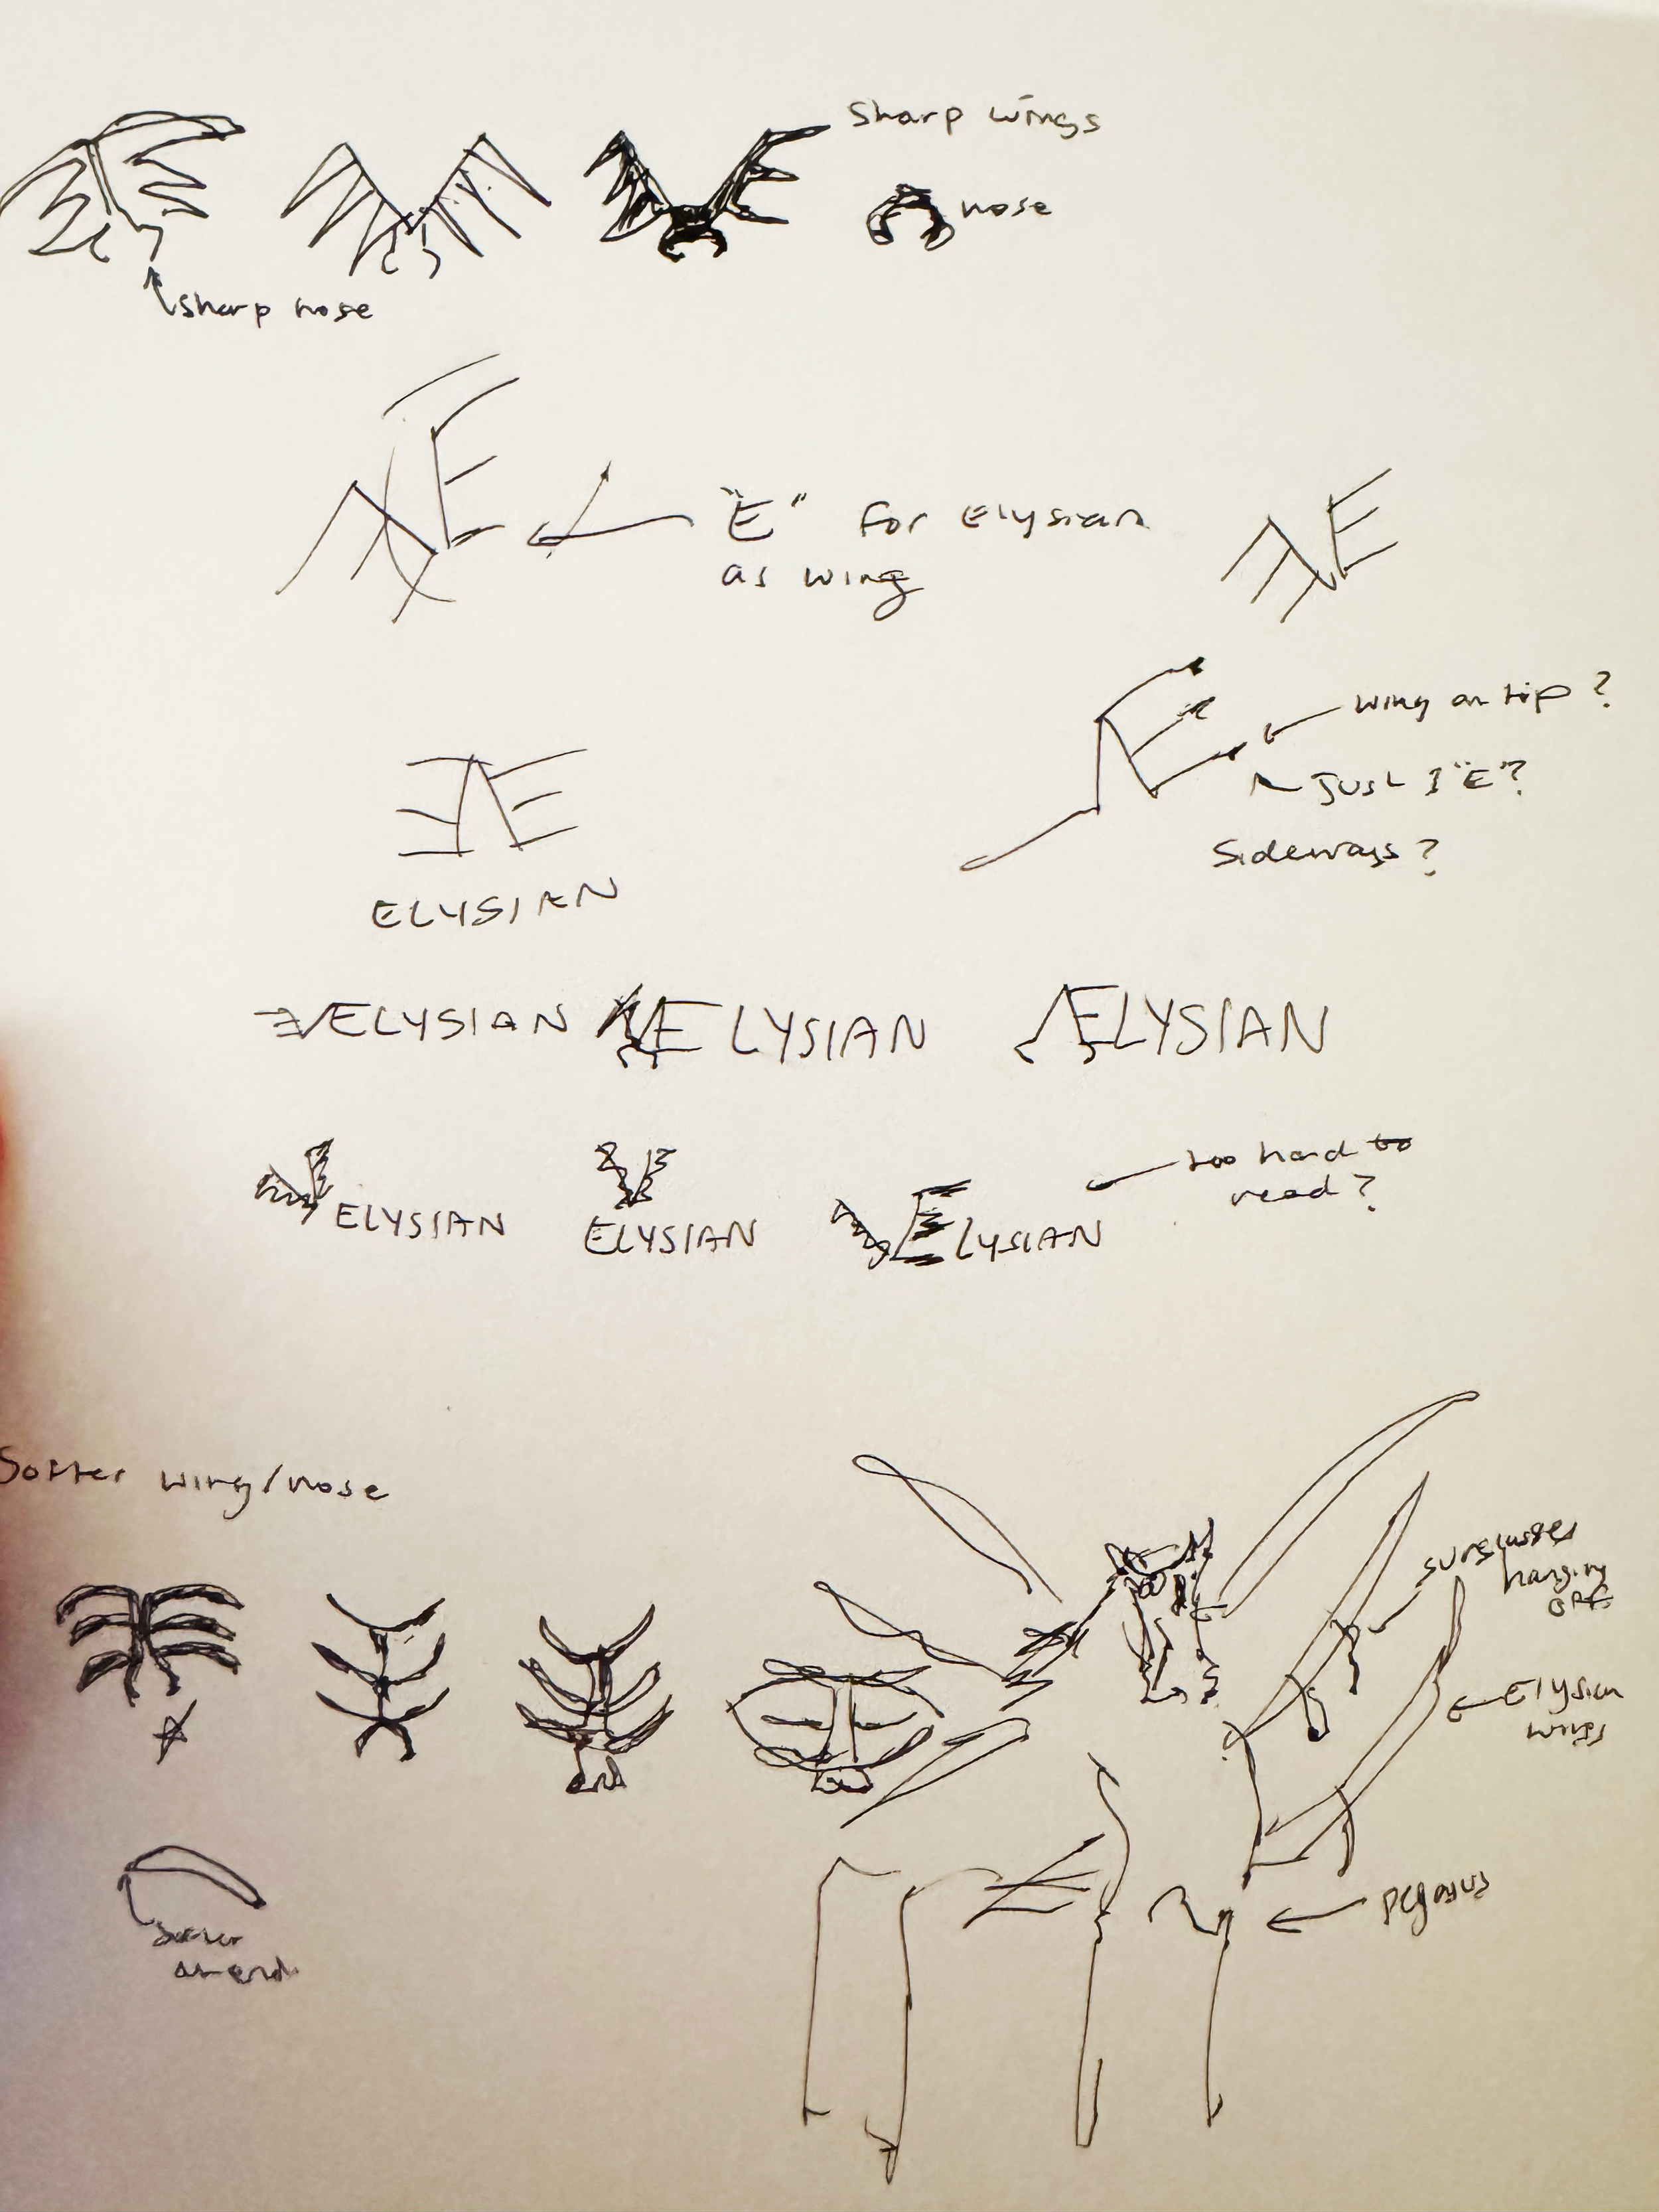 Sharp wings
nose
sharp nose
"E" for Elysian
as wing
wing on tip?
Just 1 "E"?
Sideways?
ELYSIAN
ELYSIAN
ELYSIAN
ELYSIAN
too hard to
read?
ELYSIAN
ELYSIAN
ELYSIAN
Softer wing/nose
sunglasses
hanging
off
Elysian
wings
Pegasus
softer
at end